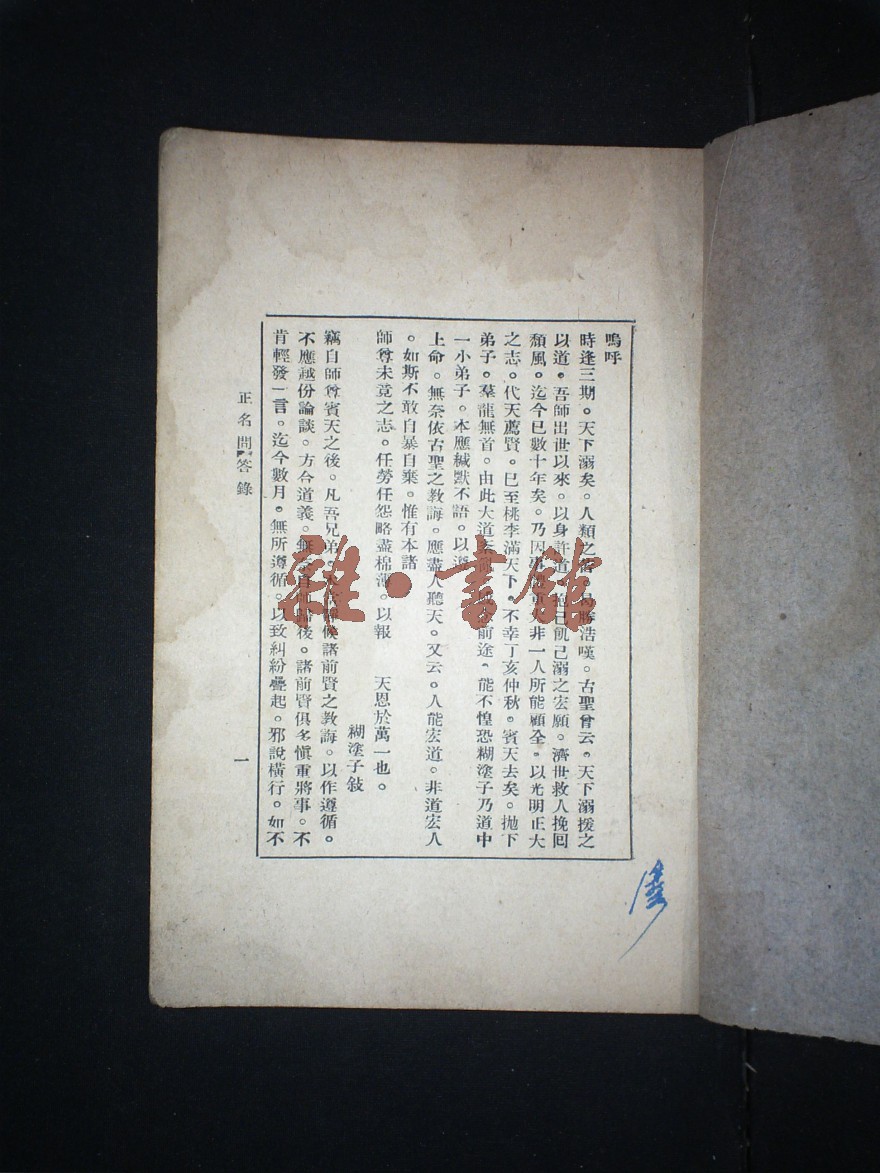 嗚呼
時逢三期。天下溺矣。人類之浩嘆。古聖曾云。天下溺援之
以道。吾師出世以來。以身許道。己飢己溺之宏願。濟世救人挽回
頹風。迄今已數十年矣。乃因非一人所能顧全。以光明正大
之志。代天薦賢。已至桃李滿天下。不幸丁亥仲秋。賓天去矣。拋下
弟子。羣龍無首。由此大道前途。能不惶恐糊塗子乃道中
一小弟子。本應緘默不語。以
上命。無奈依古聖之教誨。應盡人聽天。又云。人能宏道。非道宏人
。如斯不敢自暴自棄。惟有本諸
師尊未竟之志。任勞任怨略盡棉薄。以報 天恩於萬一也。
糊塗子敍
竊自師尊賓天之後。凡吾兄弟。候諸前賢之教誨。以作遵循。
不應越份論談。方今道義。無後。諸前賢俱多慎重將事。不
肯輕發一言。迄今數月。無所遵循。以致糾紛疊起。邪說橫行。如不
正名問答錄
一
雜·書館